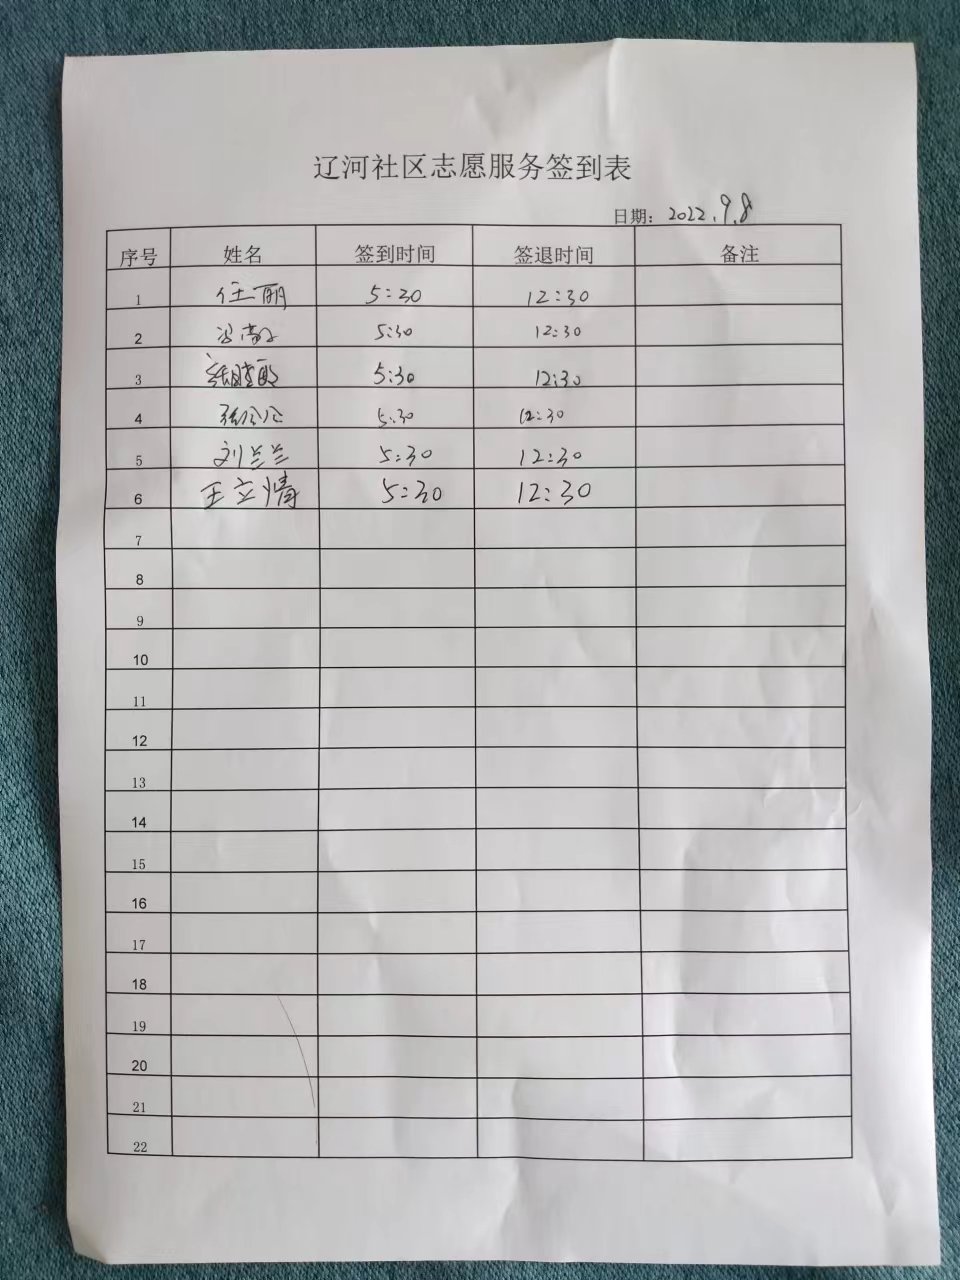 辽河社区志愿服务签到表
日期: 2022.9.8
序号 姓名 签到时间 签退时间 备注
1 任丽 5:30 12:30
2 5:30 12:30
3 5:30 12:30
4 5:30 12:30
5 刘兰兰 5:30 12:30
6 王立情 5:30 12:30
7
8
9
10
11
12
13
14
15
16
17
18
19
20
21
22